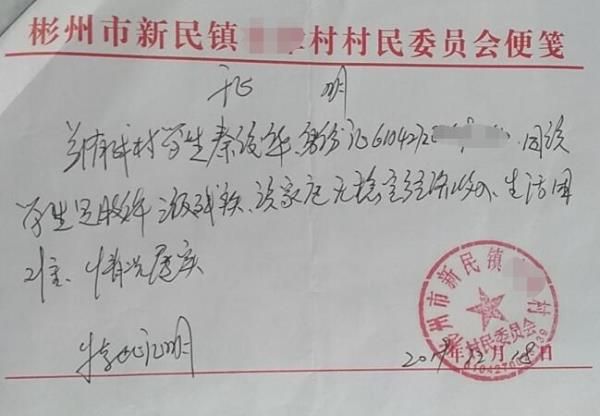 彬州市新民镇 村村民委员会便笺
证 明
兹有我村学生秦 身份证61042 因该
学生是肢体 级残疾、该家庭无稳定经济收入、生活困
难、情况属实
特此证明
彬州市新民镇 村
村民委员会
年12月18日